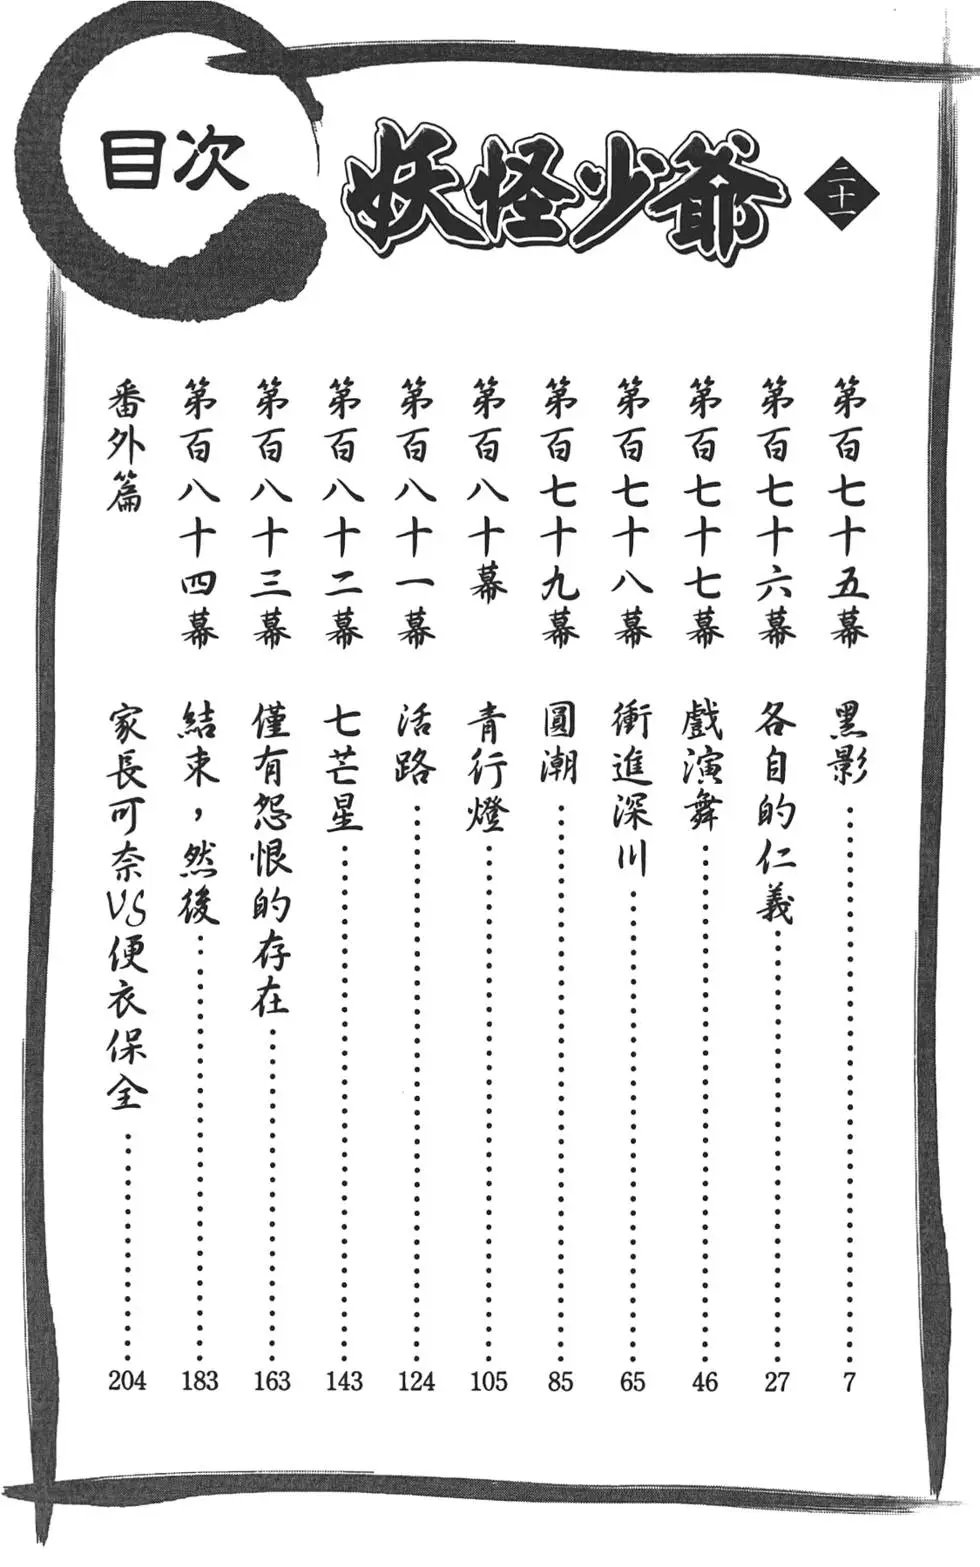 目次
妖怪少爺
二十一
第百七十五幕 黑影 7
第百七十六幕 各自的仁義 27
第百七十七幕 戲演舞 46
第百七十八幕 衝進深川 65
第百七十九幕 圓潮 85
第百八十幕 青行燈 105
第百八十一幕 活路 124
第百八十二幕 七芒星 143
第百八十三幕 僅有怨恨的存在 163
第百八十四幕 結束，然後 183
番外篇 家長可奈VS便衣保全 204